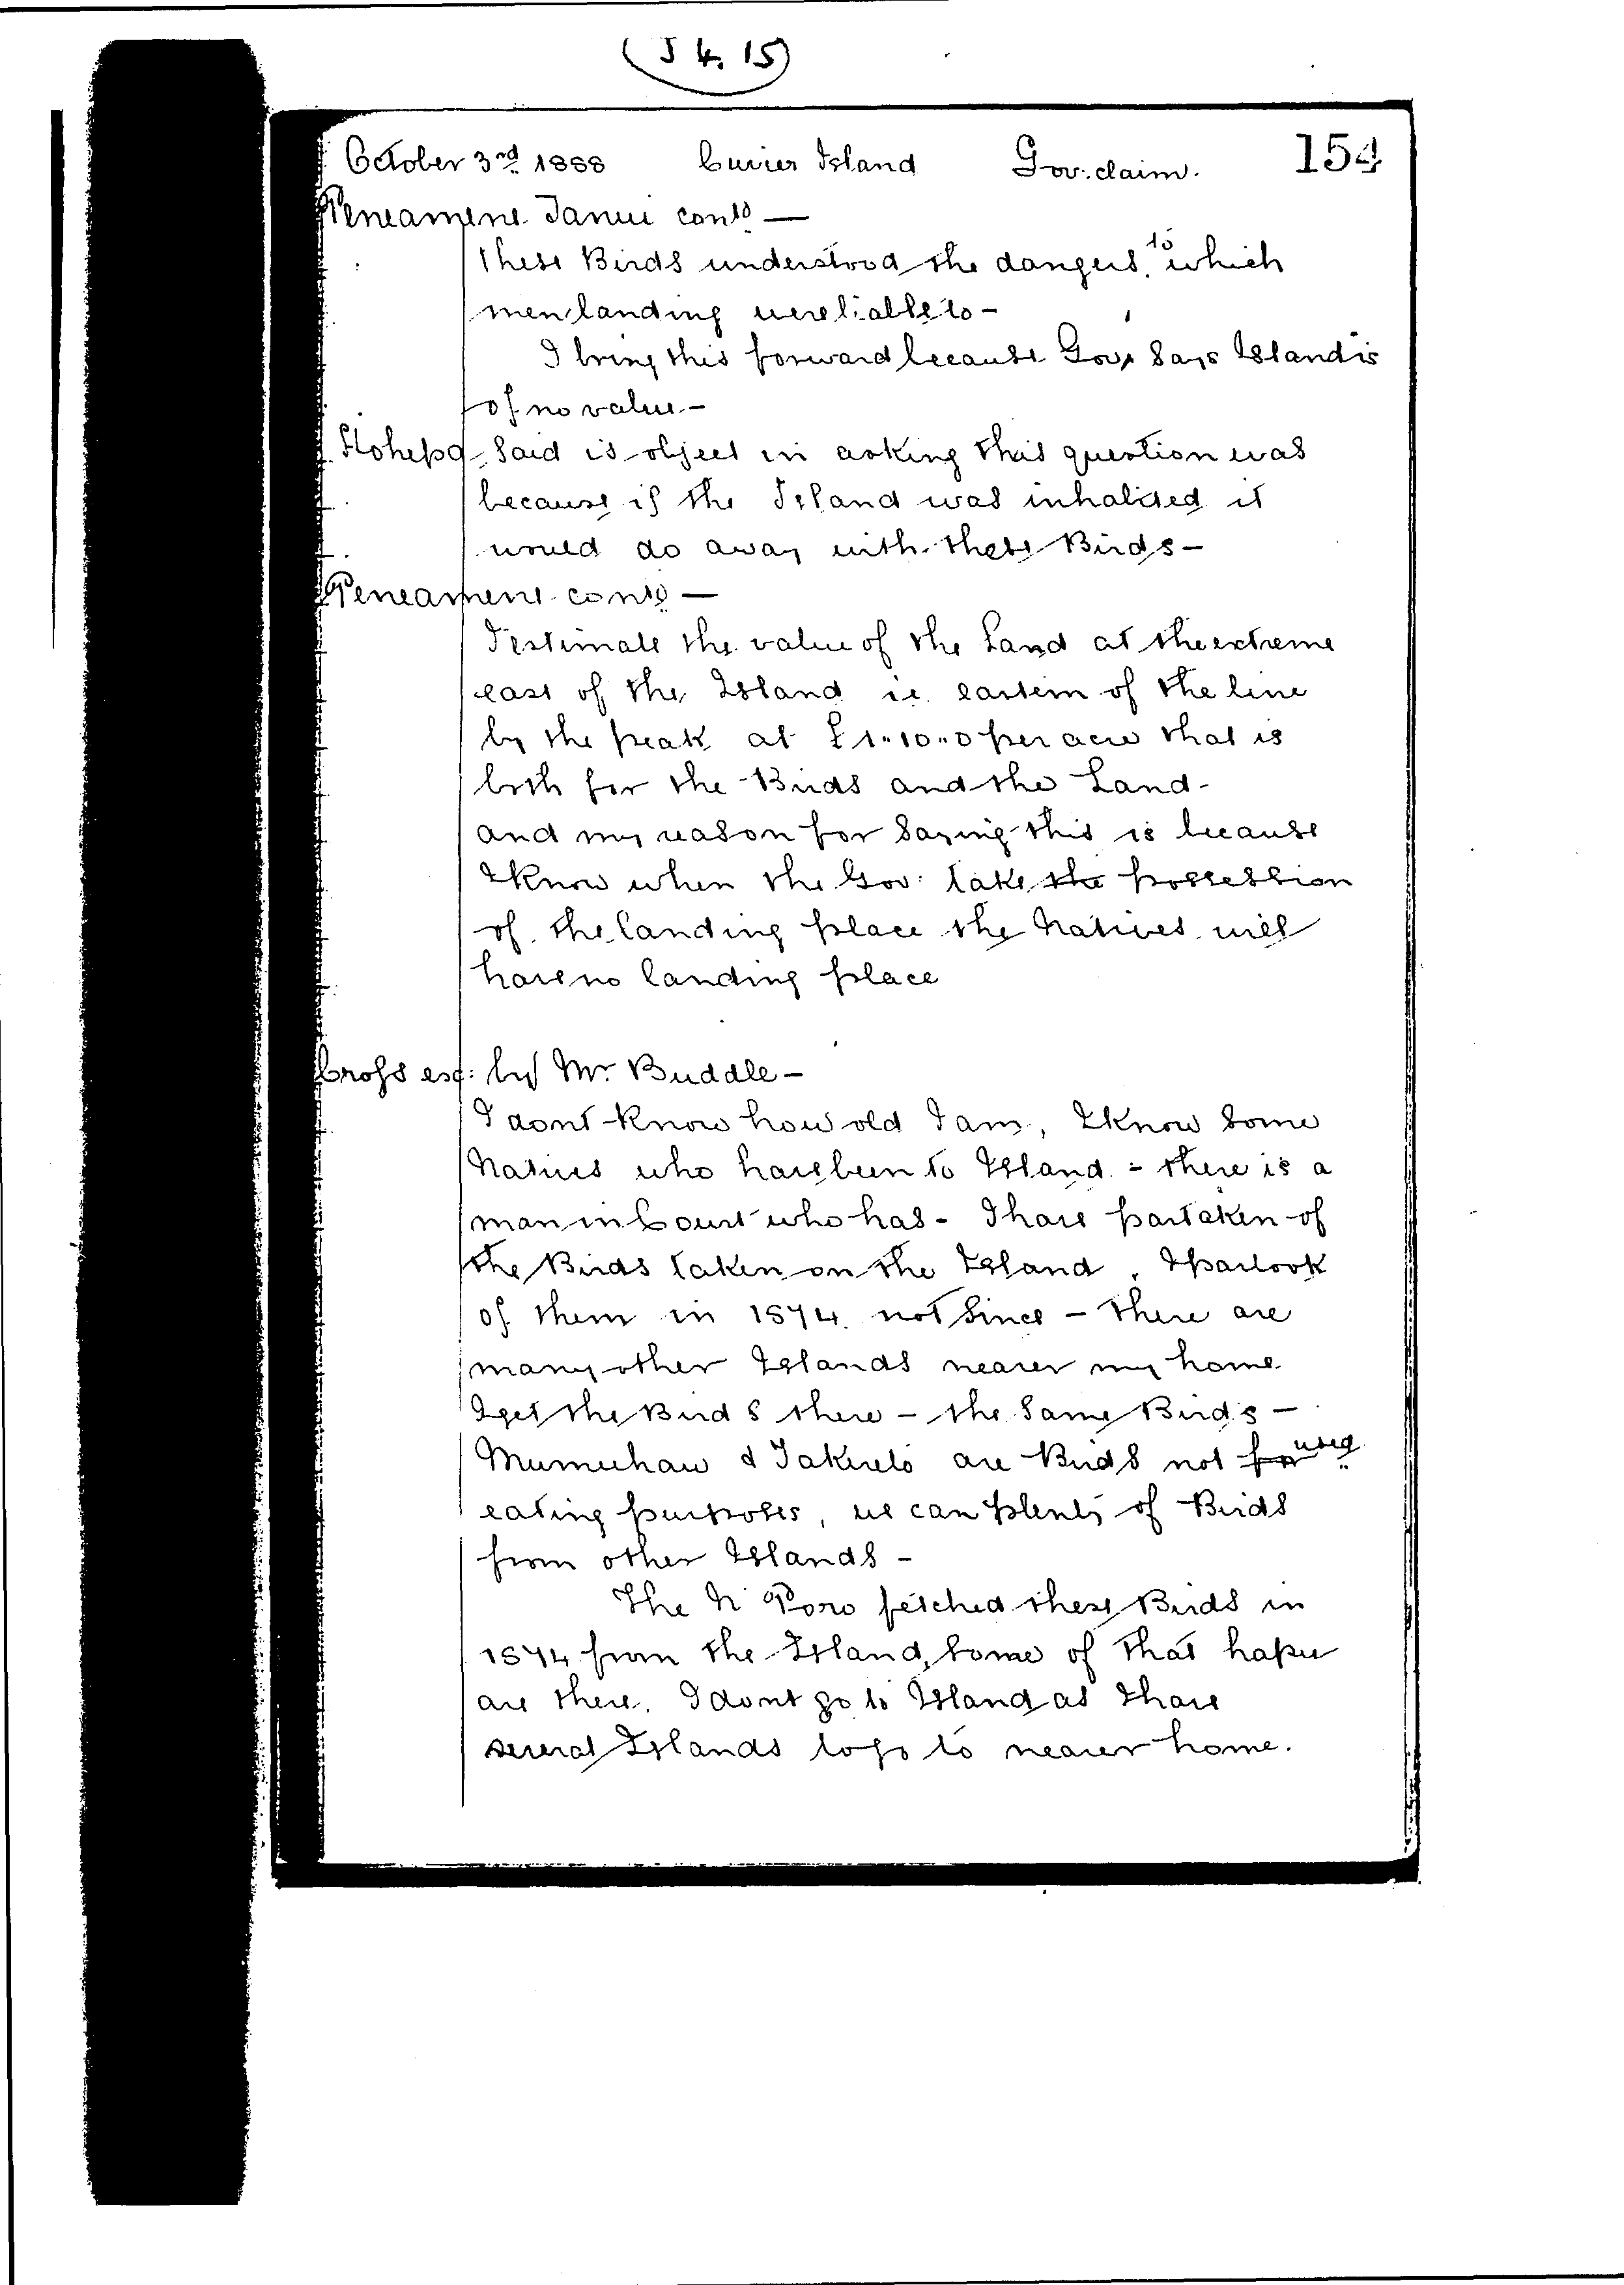 (J 4. 15)
October 3rd 1888 Cuvier Island Gov: claim. 154
Peneamene Tanui contd —
these Birds understood the dangers to which
men landing were liable to -
I bring this forward because Gov says Island is
of no value. -
Hohepa said is object in asking this question was
because if the Island was inhabited it
would do away with these Birds -
Peneamene contd —
I estimate the value of the Land at the extreme
east of the Island ie. eastern of the line
by the peak at £1.10.0 per acre that is
both for the Birds and the Land -
and my reason for saying this is because
I know when the Gov: take the possession
of the landing place the Natives will
have no landing place
Cross ex: by Mr. Buddle -
I dont know how old I am, I know some
Natives who have been to Island. - there is a
man in Court who has - I have partaken of
the Birds taken on the Island, I partook
of them in 1874. not since - There are
many other Islands nearer my home
I get the Birds there - the same Birds -
& are Birds not used
eating purposes, we can plenty of Birds
from other Islands -
The N Poro fetched these Birds in
1874 from the Island, some of that hapu
are there. I dont go to Island as I have
several Islands to go to nearer home.